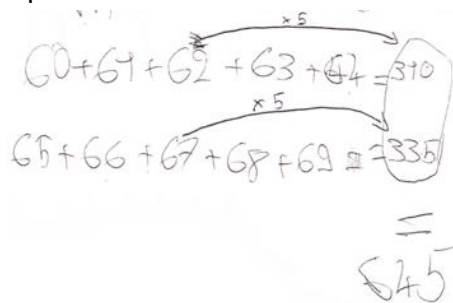 ×5
60+61+62+63+64=310
×5
65+66+67+68+69==335
=
645